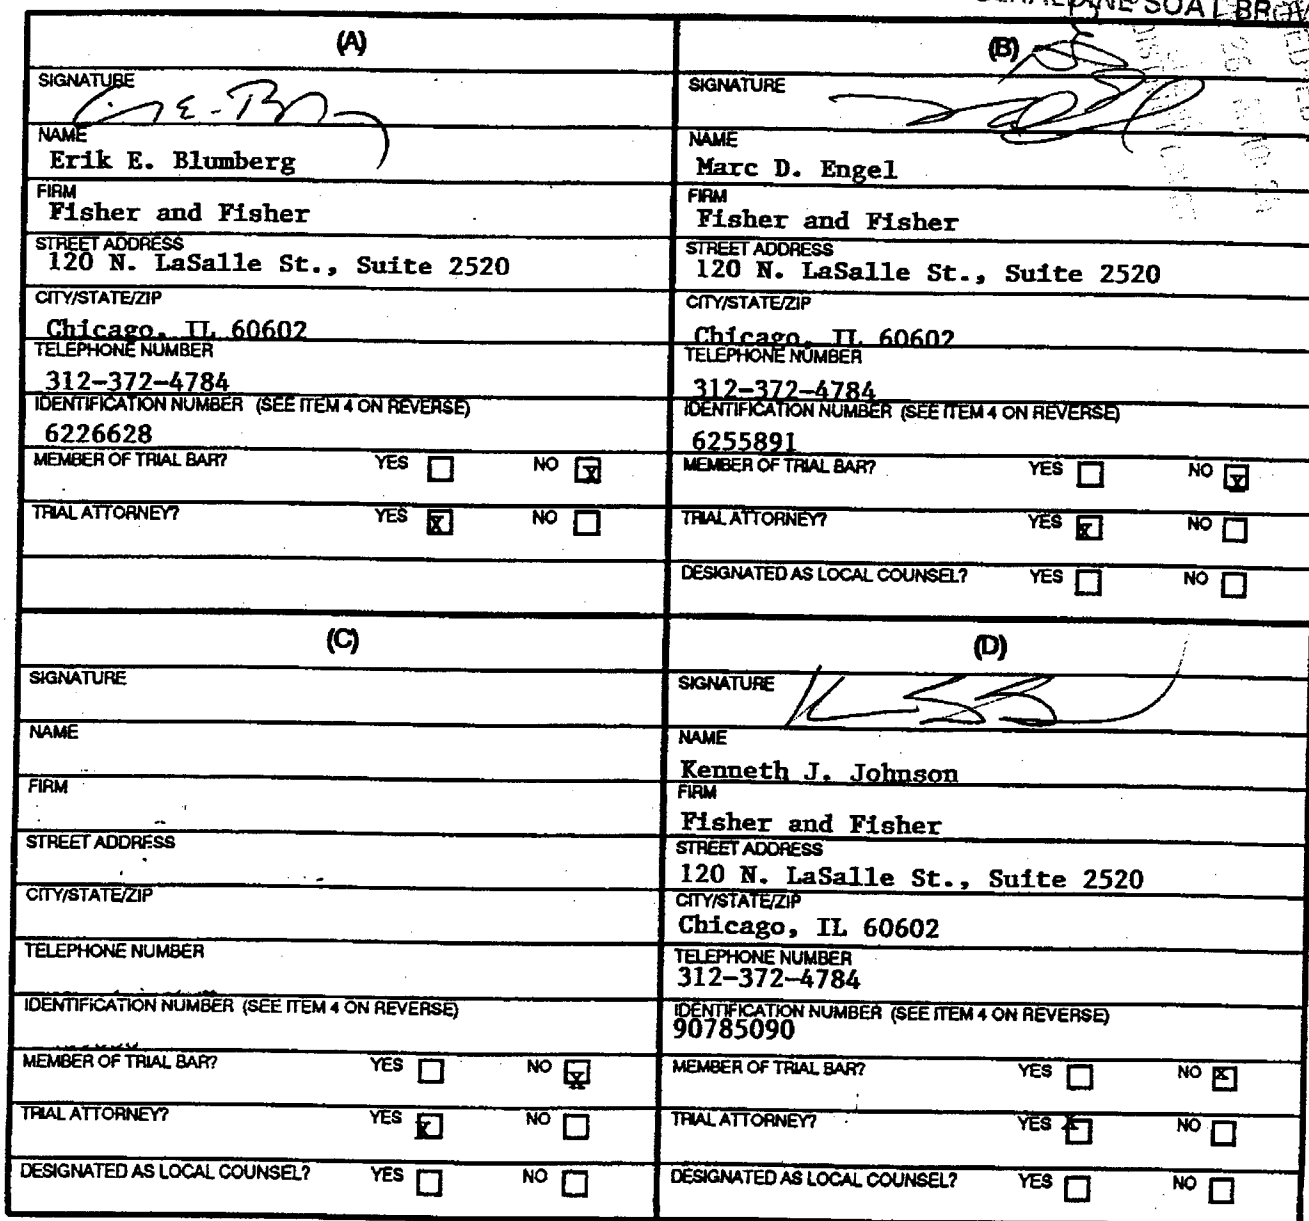 (A)
SIGNATURE
NAME
Erik E. Blumberg
FIRM
Fisher and Fisher
STREET ADDRESS
120 N. LaSalle St., Suite 2520
CITY/STATE/ZIP
Chicago, IL 60602
TELEPHONE NUMBER
312-372-4784
IDENTIFICATION NUMBER (SEE ITEM 4 ON REVERSE)
6226628
MEMBER OF TRIAL BAR? YES NO X
TRIAL ATTORNEY? YES X NO
(B)
SIGNATURE
NAME
Marc D. Engel
FIRM
Fisher and Fisher
STREET ADDRESS
120 N. LaSalle St., Suite 2520
CITY/STATE/ZIP
Chicago, IL 60602
TELEPHONE NUMBER
312-372-4784
IDENTIFICATION NUMBER (SEE ITEM 4 ON REVERSE)
6255891
MEMBER OF TRIAL BAR? YES NO X
TRIAL ATTORNEY? YES X NO
DESIGNATED AS LOCAL COUNSEL? YES NO
(C)
SIGNATURE
NAME
FIRM
STREET ADDRESS
CITY/STATE/ZIP
TELEPHONE NUMBER
IDENTIFICATION NUMBER (SEE ITEM 4 ON REVERSE)
MEMBER OF TRIAL BAR? YES NO X
TRIAL ATTORNEY? YES X NO
DESIGNATED AS LOCAL COUNSEL? YES NO
(D)
SIGNATURE
NAME
Kenneth J. Johnson
FIRM
Fisher and Fisher
STREET ADDRESS
120 N. LaSalle St., Suite 2520
CITY/STATE/ZIP
Chicago, IL 60602
TELEPHONE NUMBER
312-372-4784
IDENTIFICATION NUMBER (SEE ITEM 4 ON REVERSE)
90785090
MEMBER OF TRIAL BAR? YES NO X
TRIAL ATTORNEY? YES X NO
DESIGNATED AS LOCAL COUNSEL? YES NO